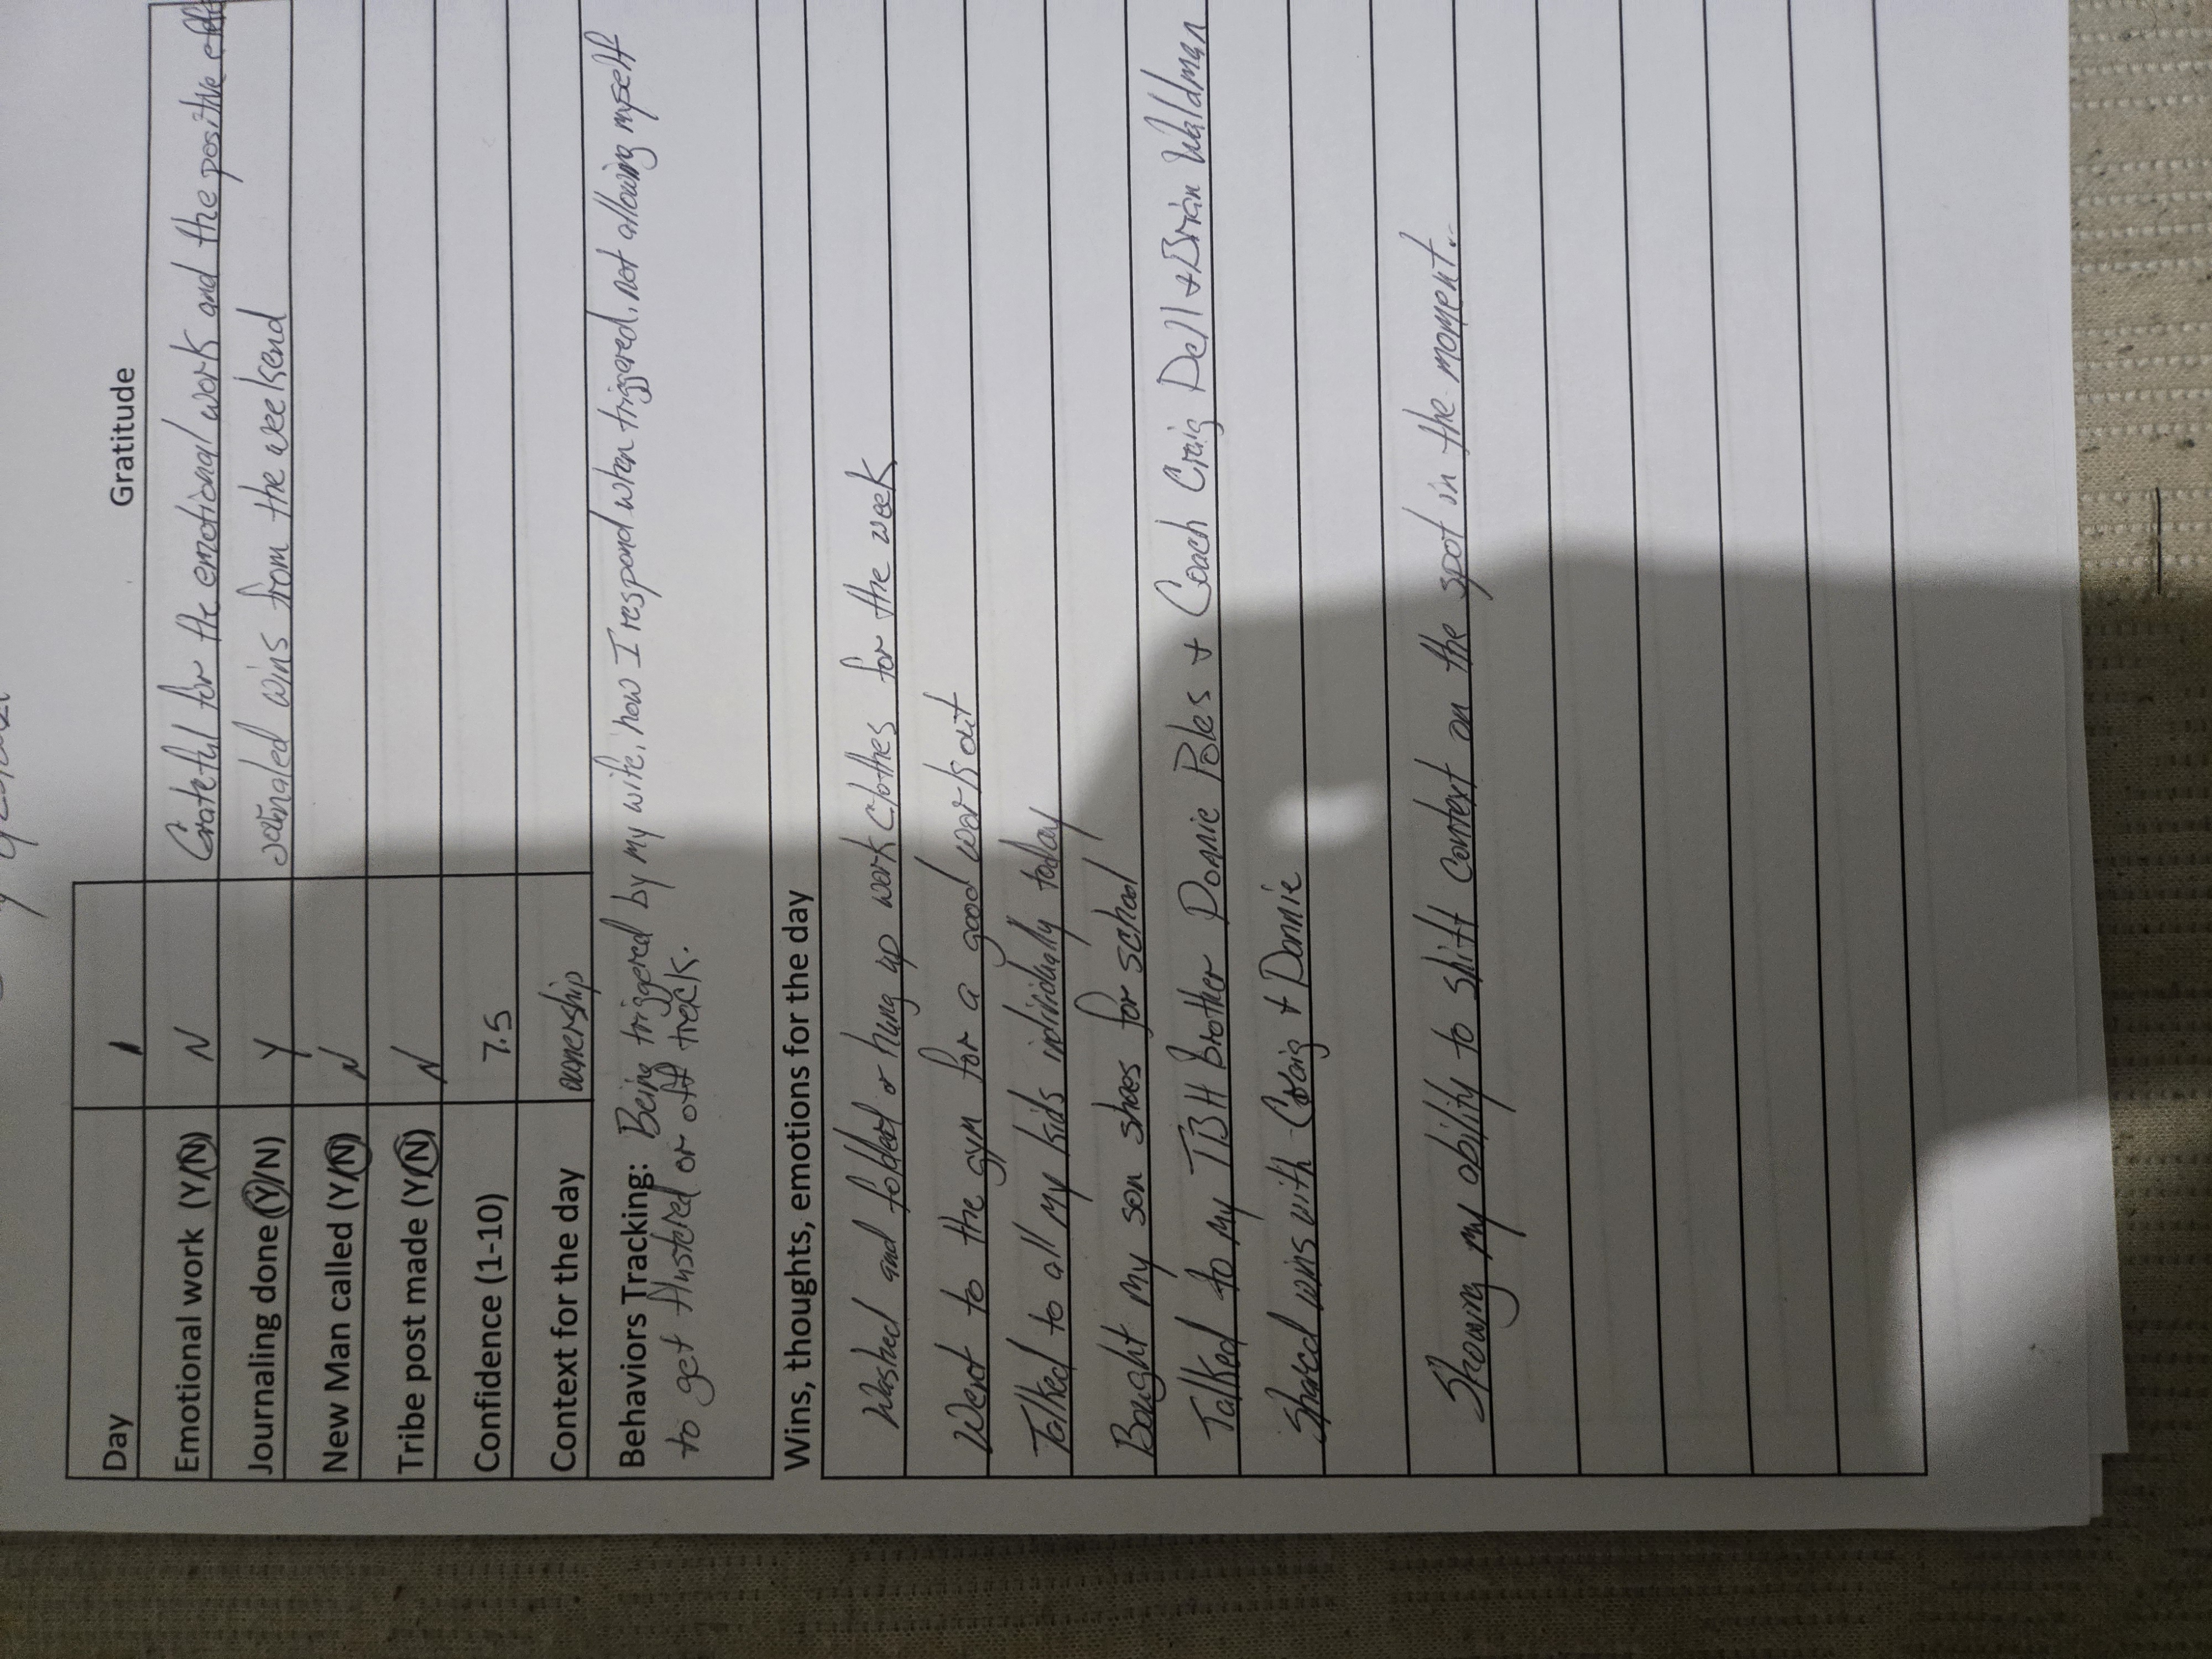 Day 1 Gratitude
Emotional work (Y/N) N Grateful for the emotional work and the positive
Journaling done (Y/N) Y wins from the weekend
New Man called (Y/N) N
Tribe post made (Y/N) N
Confidence (1-10) 7.5
Context for the day ownership
Behaviors Tracking: Being triggered by my wife, how I respond when triggered, not allowing myself
to get flustered or off track.
Wins, thoughts, emotions for the day
Washed and folded or hung up work clothes for the week
Went to the gym for a good workout
Talked to all my kids individually today
Bought my son shoes for school
Talked to my TBH brother Donnie Poles + Coach Craig Dell + Brian Waldman
Shared wins with Craig + Donnie
Showing my ability to shift context on the spot in the moment.